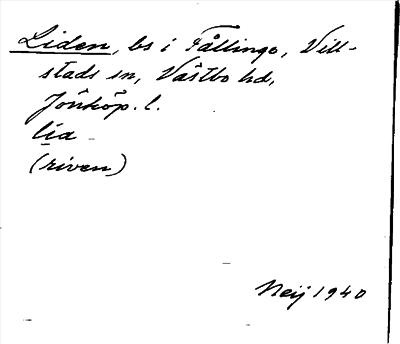 Liden, bs i Fållinge, Vill-
stads sn, Västbo hd,
Jönköp. l.
lia
(riven)
Neij 1940